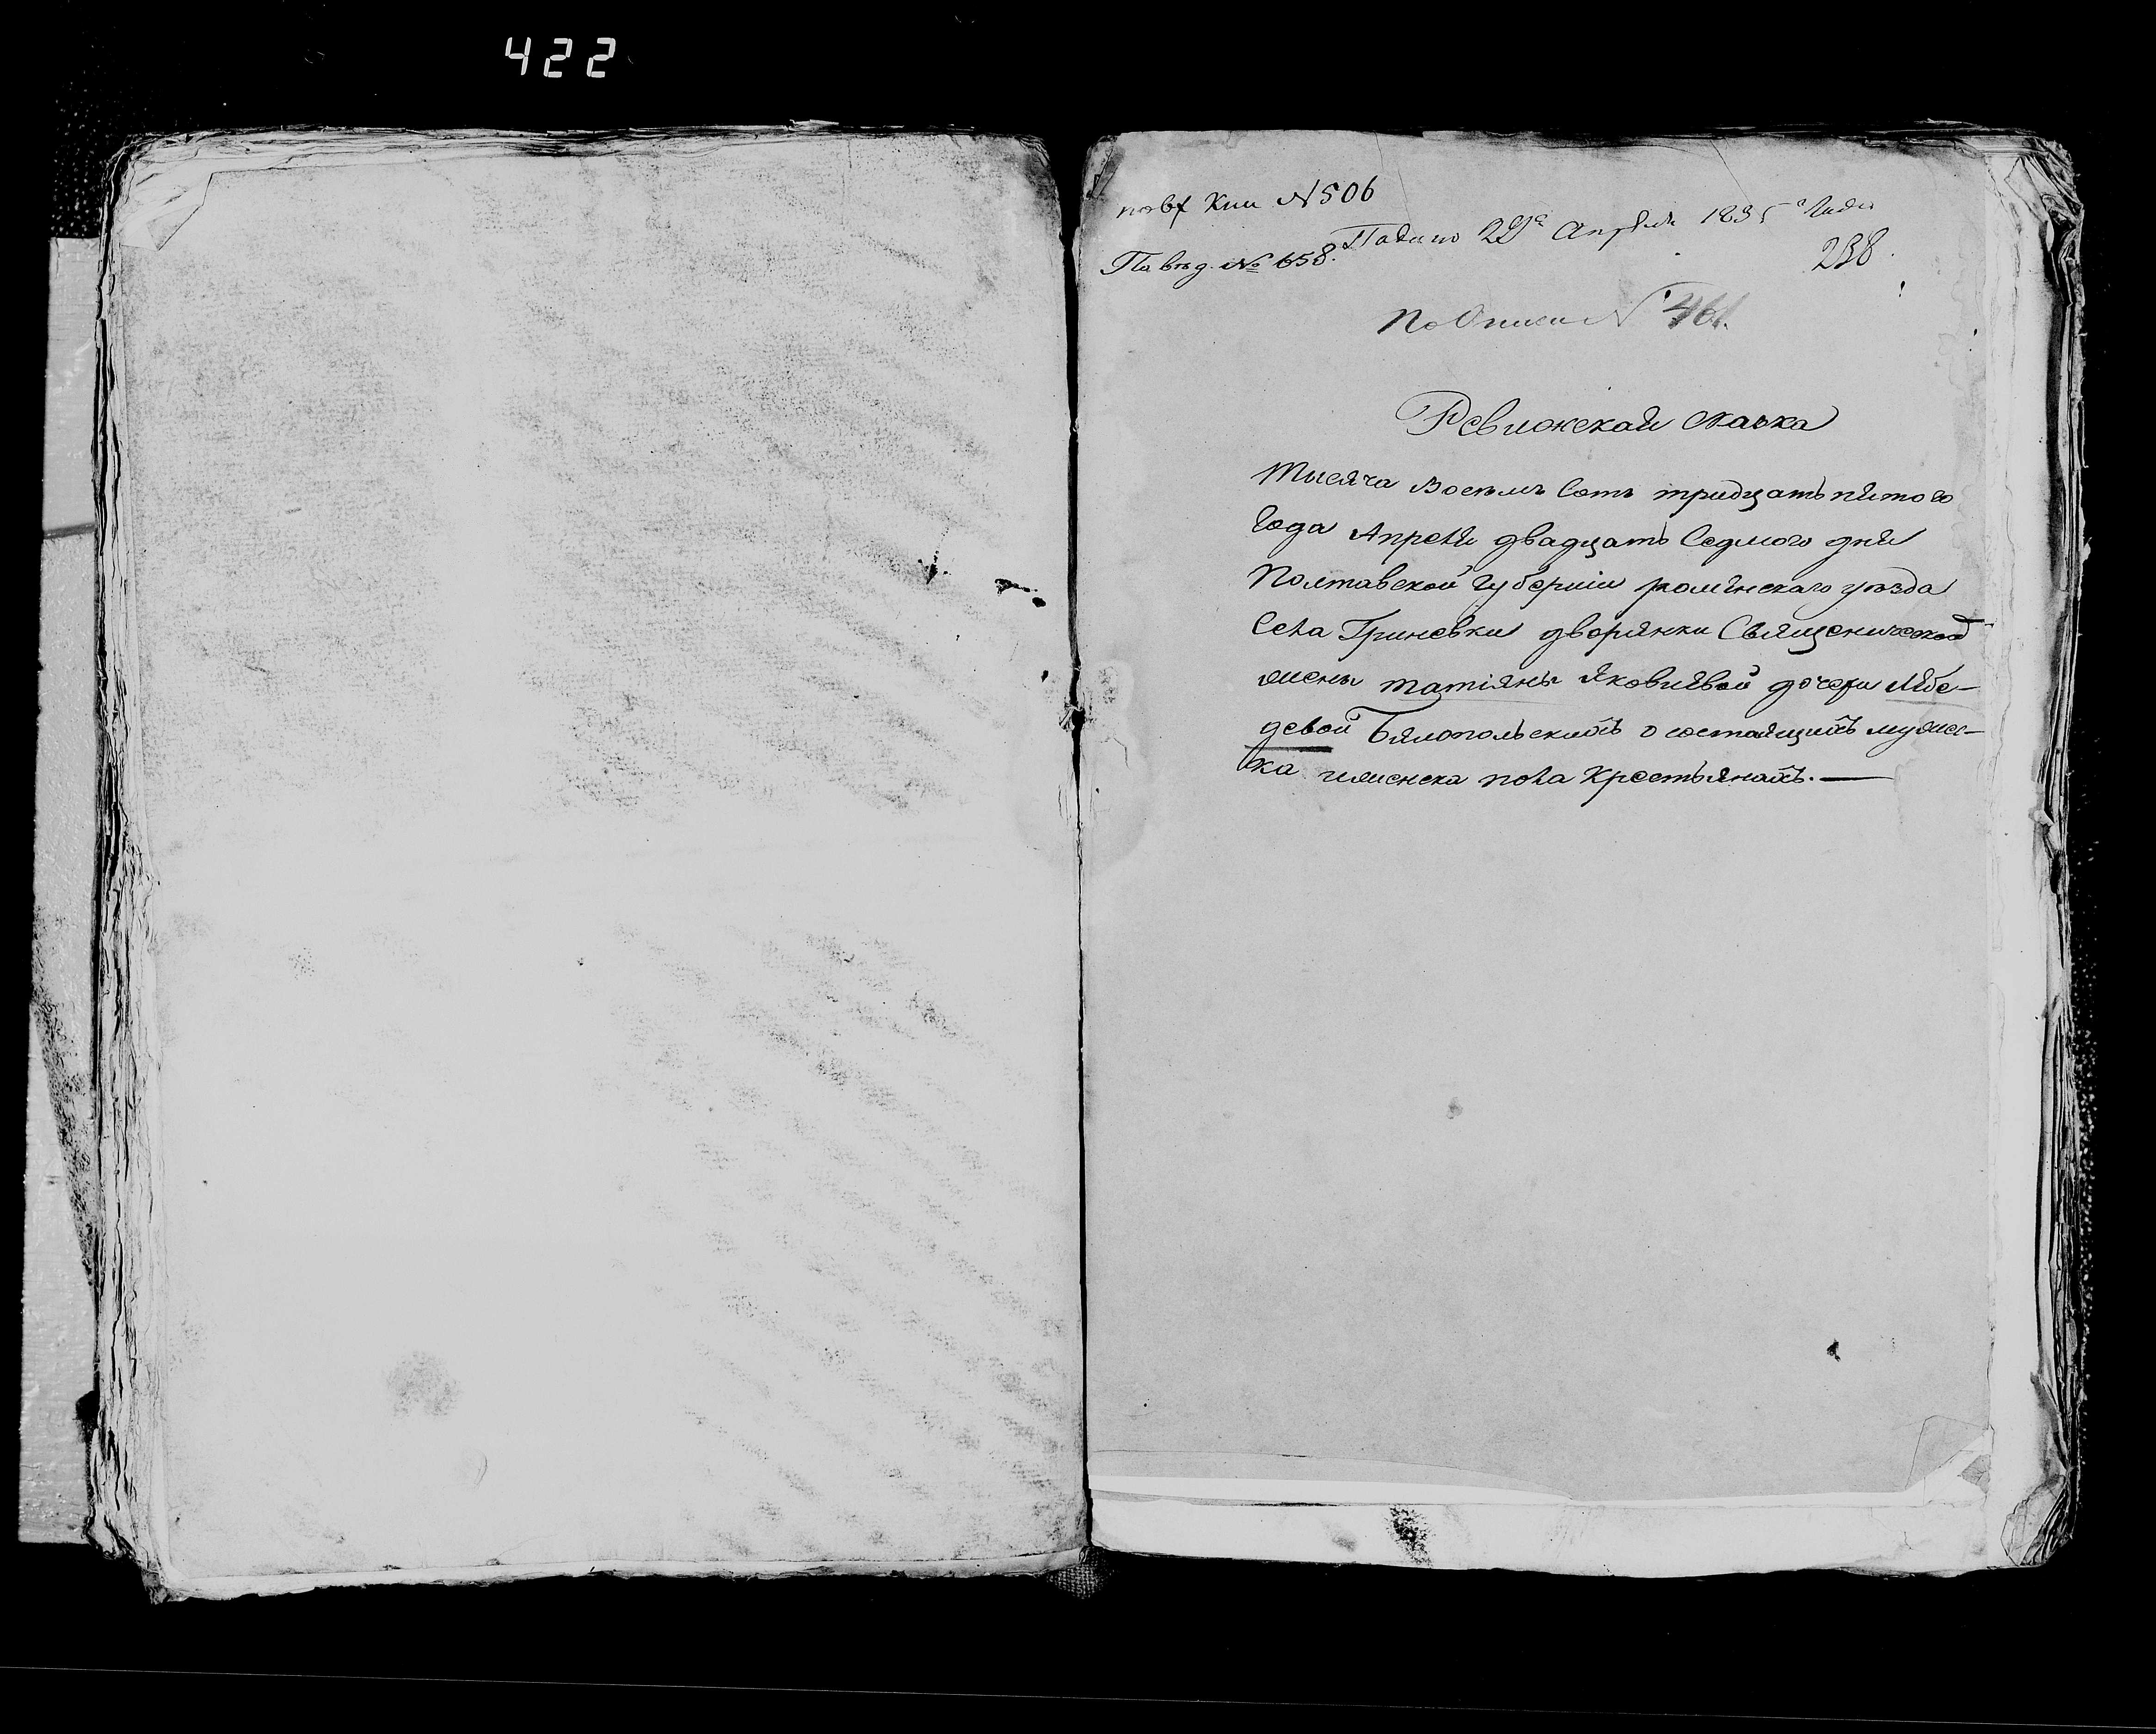 422
Кни N506
По вѣд. № 658.
Подано 29го Апреля 1835 Года
238.
По Описи N 461.
Ревижская сказка
Тысяча Восемъ Сотъ тридцать пятого
Года Апреля двадцать Седмого дня
Полтавской Губерніи роменскаго уезда
Села Гриневки дворянки Священической
жены татіяны Яковлевой дочери Лебе-
девой Бялопольскихъ о состоящихъ мужес-
ка иженска пола Крестьянахъ.